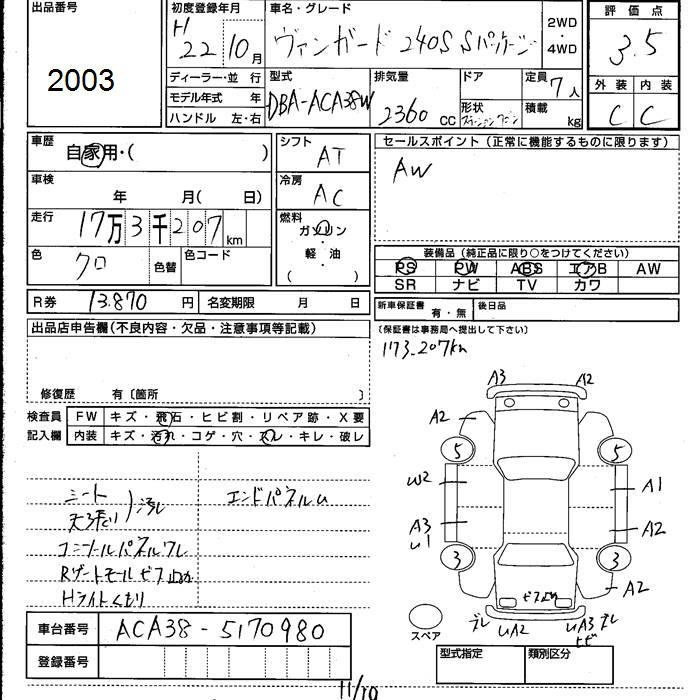 出品番号
2003
初度登録年月
H 22 10月
車名・グレード
ヴァンガード 240S Sパッケージ
2WD
・
4WD
評価点
3.5
外装 内装
C C
ディーラー・並 行
モデル年式 年
ハンドル 左・右
型式
DBA-ACA38W
排気量
2360 CC
ドア
形状
ステーションワゴン
定員
7人
積載
kg
車歴
自家用・( )
車検
年 月( 日)
走行
17万3千207km
色
クロ
色替
色コード
シフト
AT
冷房
AC
燃料
ガソリン
・
軽・油
( )
セールスポイント(正常に機能するものに限ります)
AW
装備品(純正品に限り○をつけてください)
PS PW ABS エアB AW
SR ナビ TV カワ
R券 13.870 円
名変期限 月 日
新車保証書
有・無
後日品
(保証書は事務局へ提出して下さい)
出品店申告欄(不良内容・欠品・注意事項等記載)
修復歴 有〔箇所 〕
173.207km
検査員
記入欄
FW キズ・飛石・ヒビ割・リペア跡・X要
内装 キズ・汚れ・コゲ・穴・スレ・キレ・破レ
シート
天張り
汚レ
エンドパネルU
コンソールパネルワレ
Rゲートモールビス止め
Hライトくもり
A3 A2
A2
5 5
W2 A1
A3 A2
U1
3 3
A2
ビス止め
ズレ UA2 UA3 ズレ
ヒビ
スペア
車台番号 ACA38-5170980
登録番号
型式指定 類別区分
11/10